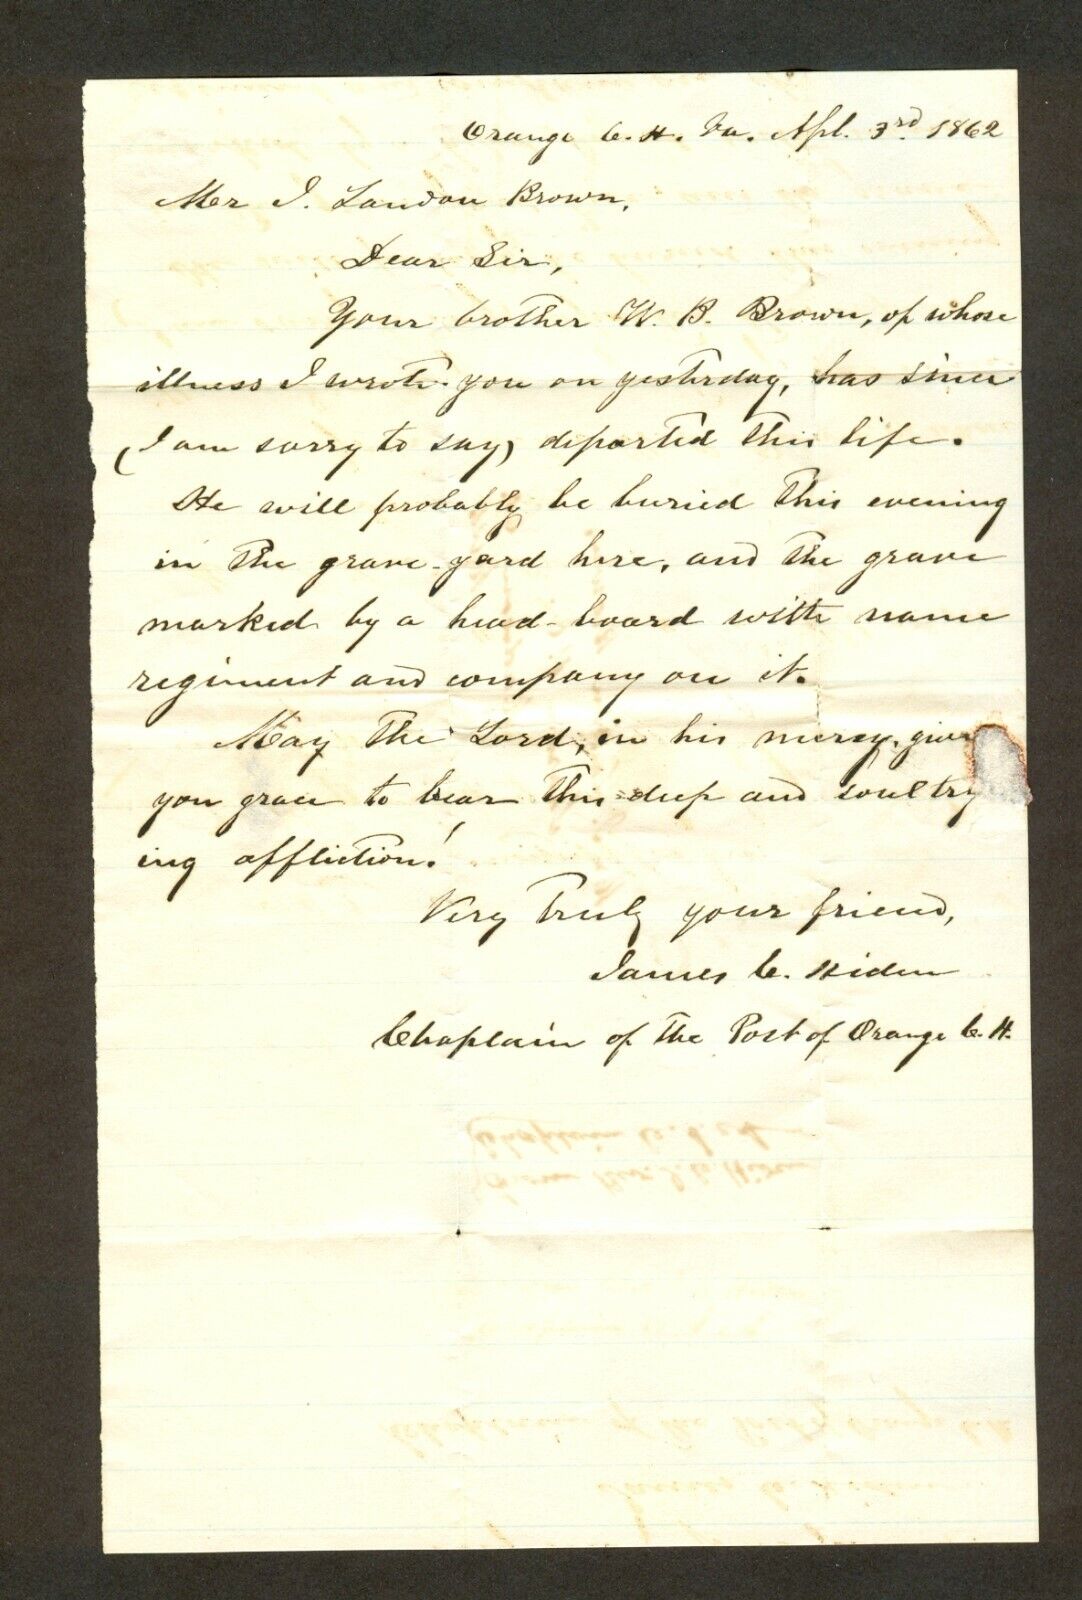 Orange C. H. Va. Apl. 3rd 1862
Mr J. Landon Brown,
Dear Sir,
Your brother W. B. Brown, of whose
illness I wrote you on yesterday, has since
(I am sorry to say) departed this life.
He will probably be buried this evening
in the grave-yard here, and the grave
marked by a head-board with name
regiment and company on it.
May the Lord, in his mercy, give
you grace to bear this deep and soul try
ing affliction!
Very truly your friend,
James C. Hiden
Chaplain of the Post of Orange C. H.